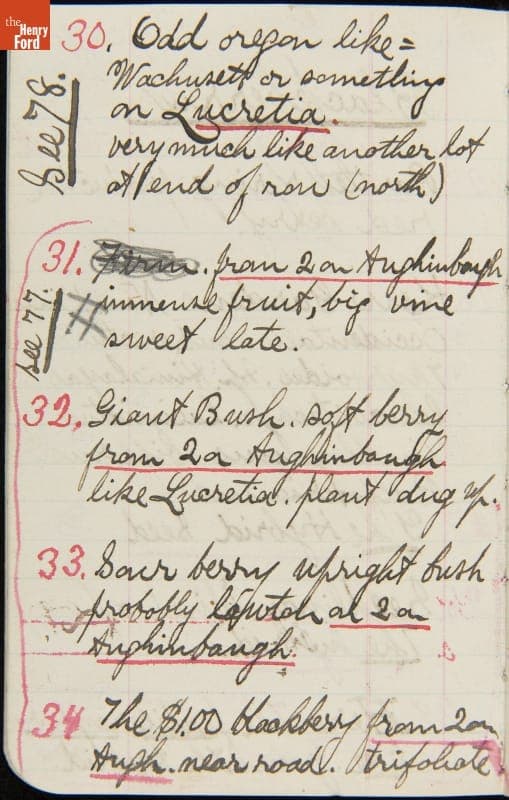 the
Henry
Ford
30. Odd oregon like =
Wachusett or something
on Lucretia.
very much like another lot
at end of row (north)
See 78.
31. from 2 on Aughinbaugh
immense fruit, big vine
sweet late.
see 77.
#
32. Giant Bush. soft berry
from 2 on Aughinbaugh
like Lucretia. plant dug up.
33. Sour berry upright bush
probobly lawton on 2 on
Aughinbaugh.
34 The $1.00 blackberry from 2 on
Augh. near road. trifoliate